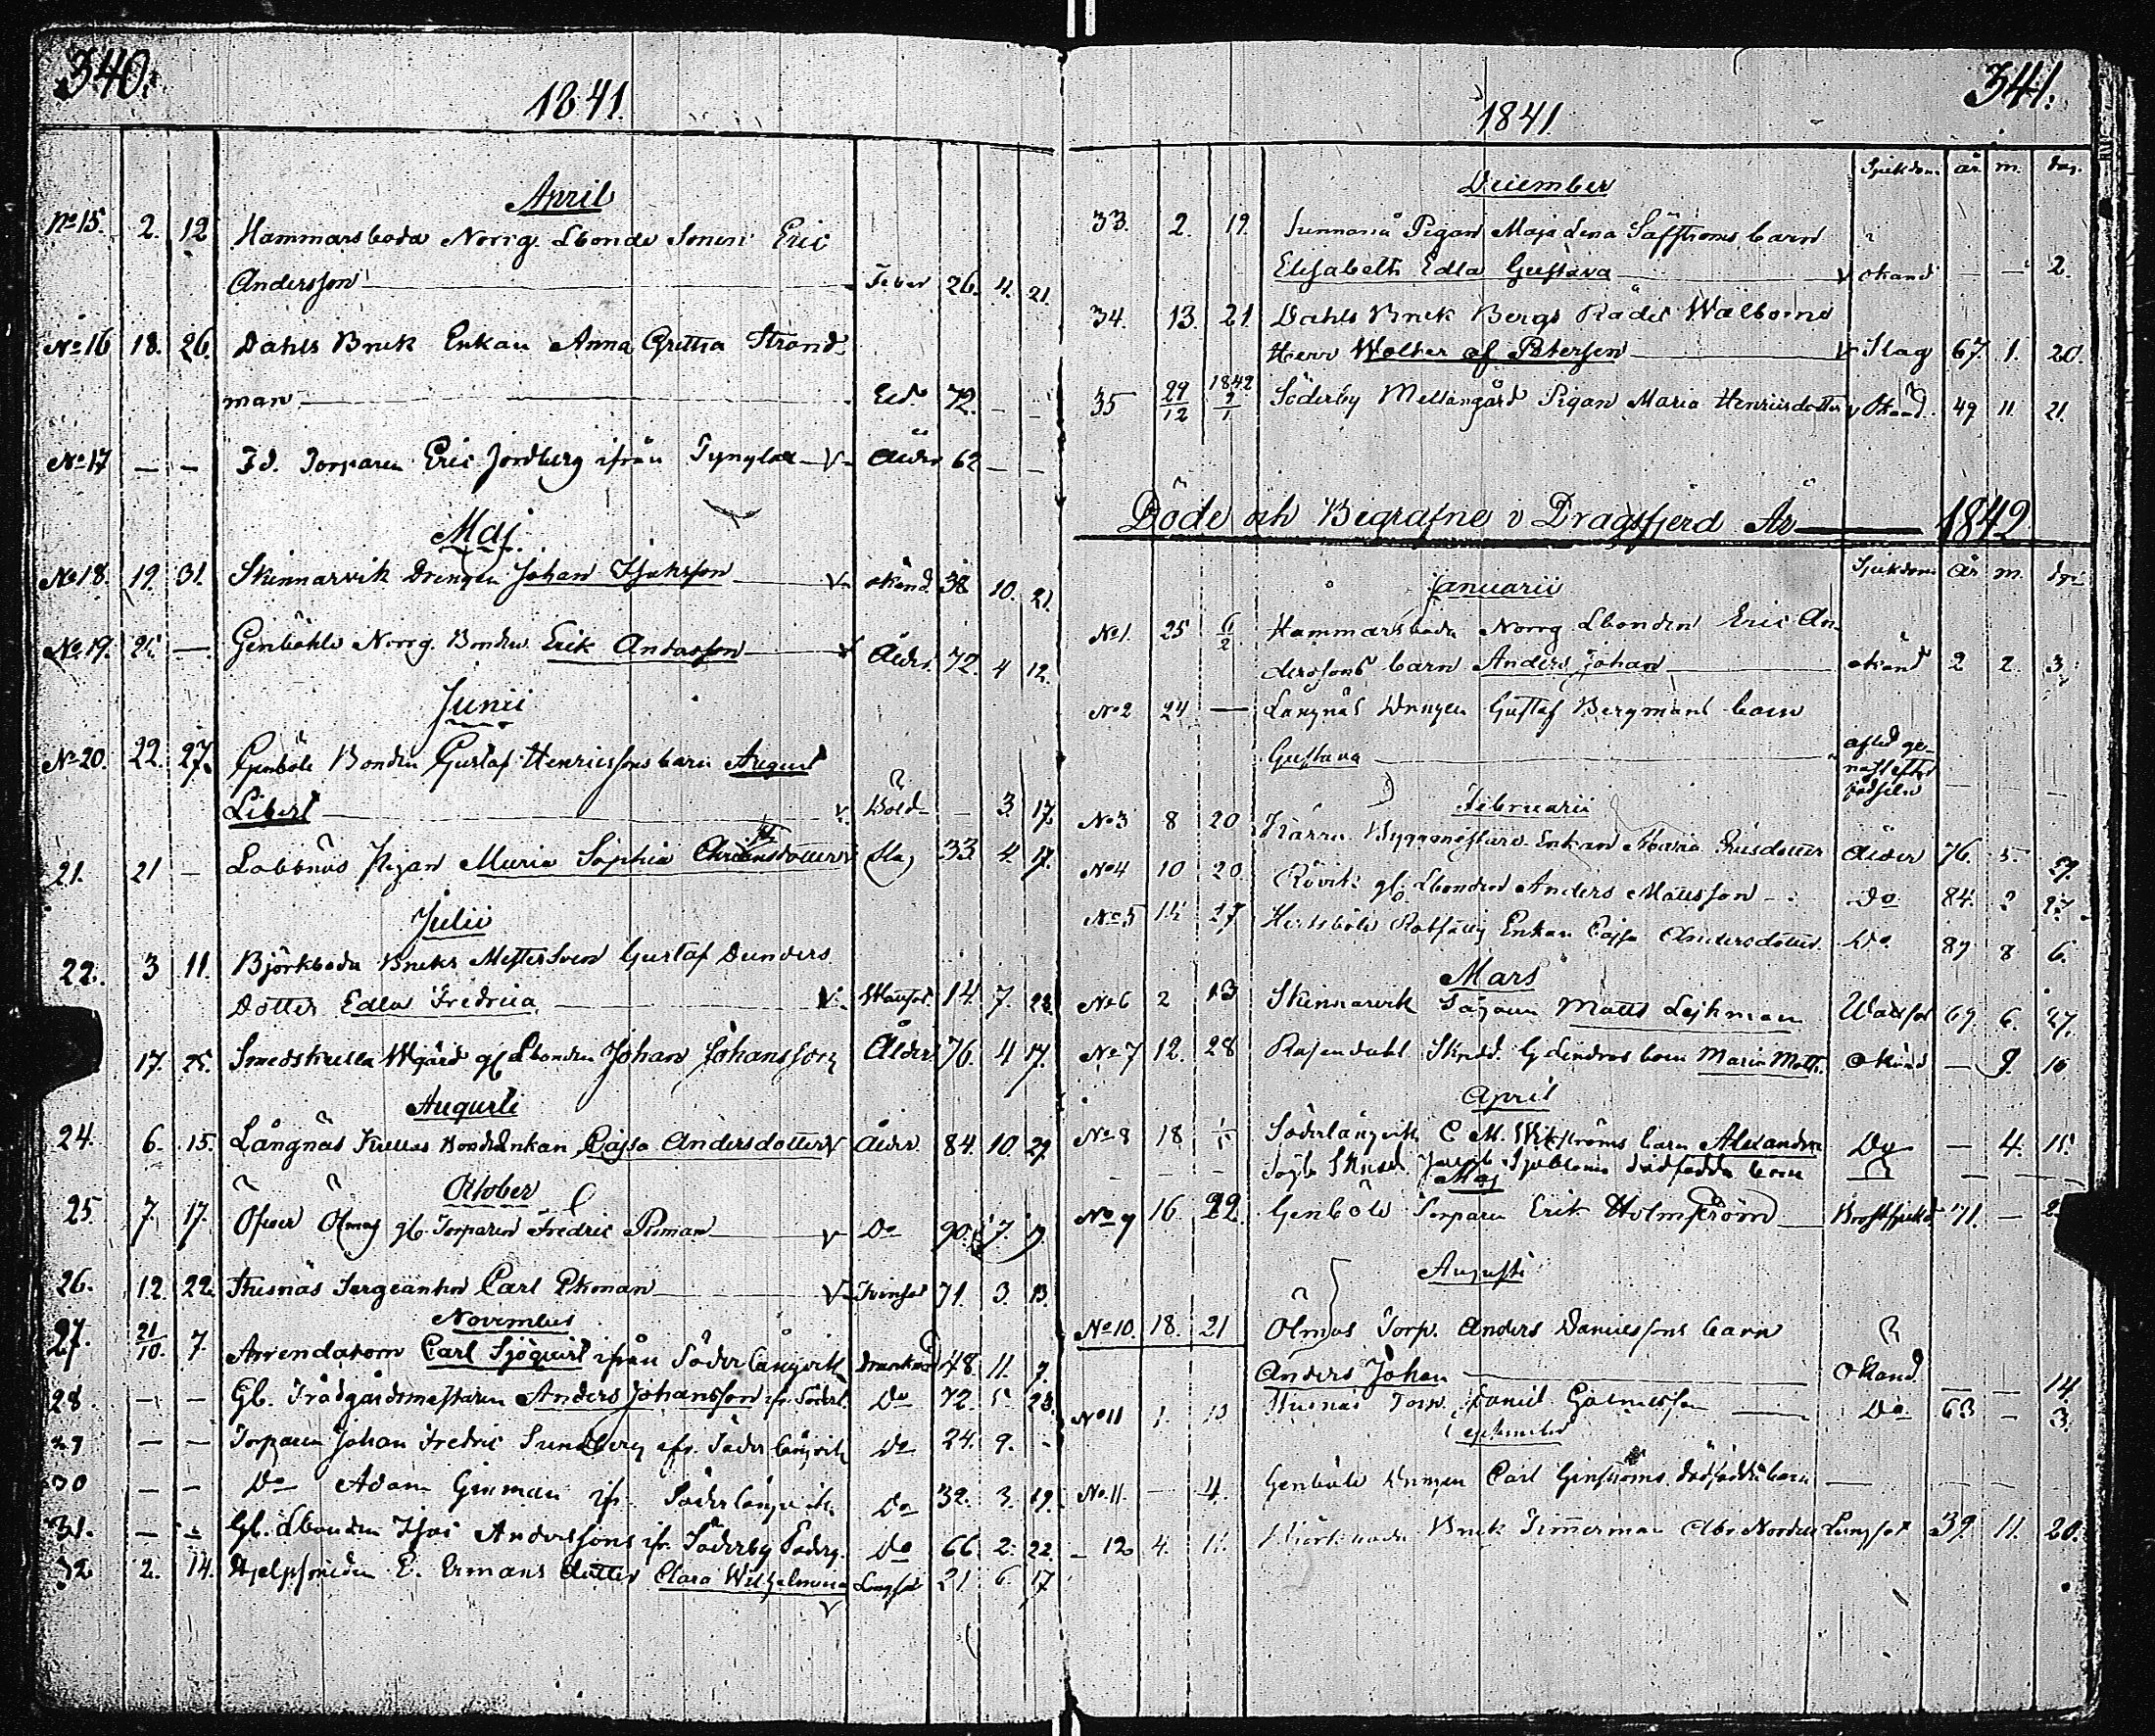 340.
1841.
April
No 15. 2. 12 Hammarsboda Norrg. Lbonde Sonen Eric
Andersson Feber 26. 4. 21.
No 16 18. 26. Dahls Bruk Enkan Anna Gretha Strand-
man 72. - -
No 17 - - Fd. Torparen Eric Jordberg ifrån v Ålder 62 - -
Maj
No 18. 19. 31. Skinnarvik Drengen Johan Isaksson v okänd. 38 10. 21.
No 19. - Genböhle Norrg. Bonden Erik Andersson v Ålder. 72. 4 12.
Junii
No 20. 22. 27. Genböle Bonden Gustaf Henricssons barn August
Libert v. - 3 17.
21. 21 - Labbnäs Pigan Maria Sophia Slag 33. 4. 17.
Julii
22. 3 11. Björkboda Bruks Mestersven Gustaf Dunders
Dotter Edla Fredrica v. 14. 7. 28
17. 25. gl. Lbonden Johan Johansson Ålder 76. 4 17.
Augusti
24. 6. 15. Långnäs Enkan Cajsa Andersdotter v Ålder. 84. 10. 29.
October
25. 7. 17. Öfver Ölmos gl. Torparen Fredric v Do 90. 7. 9.
26. 12. 22. Husnäs Sergeanten Carl Ekman v 71. 3. 13.
November
27. 21/10. 7. Arrendatorn Carl Sjöqvist ifrån Söderlångvik Drunknad 48. 11. 7.
28 - - Gl. Trädgårdsmestaren Anders Johansson ifr. Söderl. Do 72. 5. 28.
29 - - Torparen Johan Fredric Sundberg ifr. Söderlångvik Do 24. 9. -
30 - - Do Adam Genman ifr. Söderlångvik Do 32. 3. 19.
31. - - Gl. Lbonden Isac Anderssons ifr. Söderby Do 66 2. 22.
32. 2. 14. Hjelpsmeden E. Ermans dotter Clara Wilhelmina Lungsot 21 6. 17
v
341.
1841
December
Sjukdom. år m. dag.
33. 2. 19. Pigan Maja Lena Säfströms barn
Elisabeth Edla Gustava v okänd - - 2.
34. 13. 21. Dahls Bruk Bergs Rådet Wälborne
Herr Wolter af Petersen v Slag 67. 1. 20.
35 29/12 1842 Söderby Mellangård Pigan Maria Henricsdotter v Okänd. 49 11. 21.
Döde och Begrafne i Dragsfjerd År 1842
Januarii
Sjukdom år m.
No 1. 25 6/2 Hammarsboda Norrg Lbonden Eric An-
derssons barn Anders Johan okänd 2 2. 3.
No 2 24 - Långnäs Drengen Gustaf Bergmans barn
Gustava afled ge-
nast efter
födseln - - -
Februarii
No 3 8 20 Kärra Byggmestare Enkan Maria Ålder 76. 5.
No 4 10 20. Rövik gl. Lbonden Anders Mattsson Do 84. 2 27.
No 5 27 Enkan Cajsa Andersdotter Do 89 8 6.
Mars
No 6 2 13 Skinnarvik Matts Lejhman Wattsot 69. 6. 27.
No 7 12. 28 Rosendahl barn Maria okänd - 9. 10
April
No 8 18 Söderlångvik C. M. Wikströms barn Alexandra Do - 4. 15.
- - Jacob Sjöbloms dödfödda barn - - -
Maj
No 9 16. 22. Genböle Torparen Erik Holmström Bröstsjukd. 71. -
Augusti
No 10. 18. 21 Ölmos Torp. Anders Danielssons barn
Anders Johan okänd - - 14
No 11 Husnäs Torp. Daniel Do 63 - 3.
September
No 11. - 4. Genböle Drengen Carl Genströms dödfödda barn - - - -
12 4. 11. Björkboda Bruk Timmerman Lungsot 39. 11. 20.